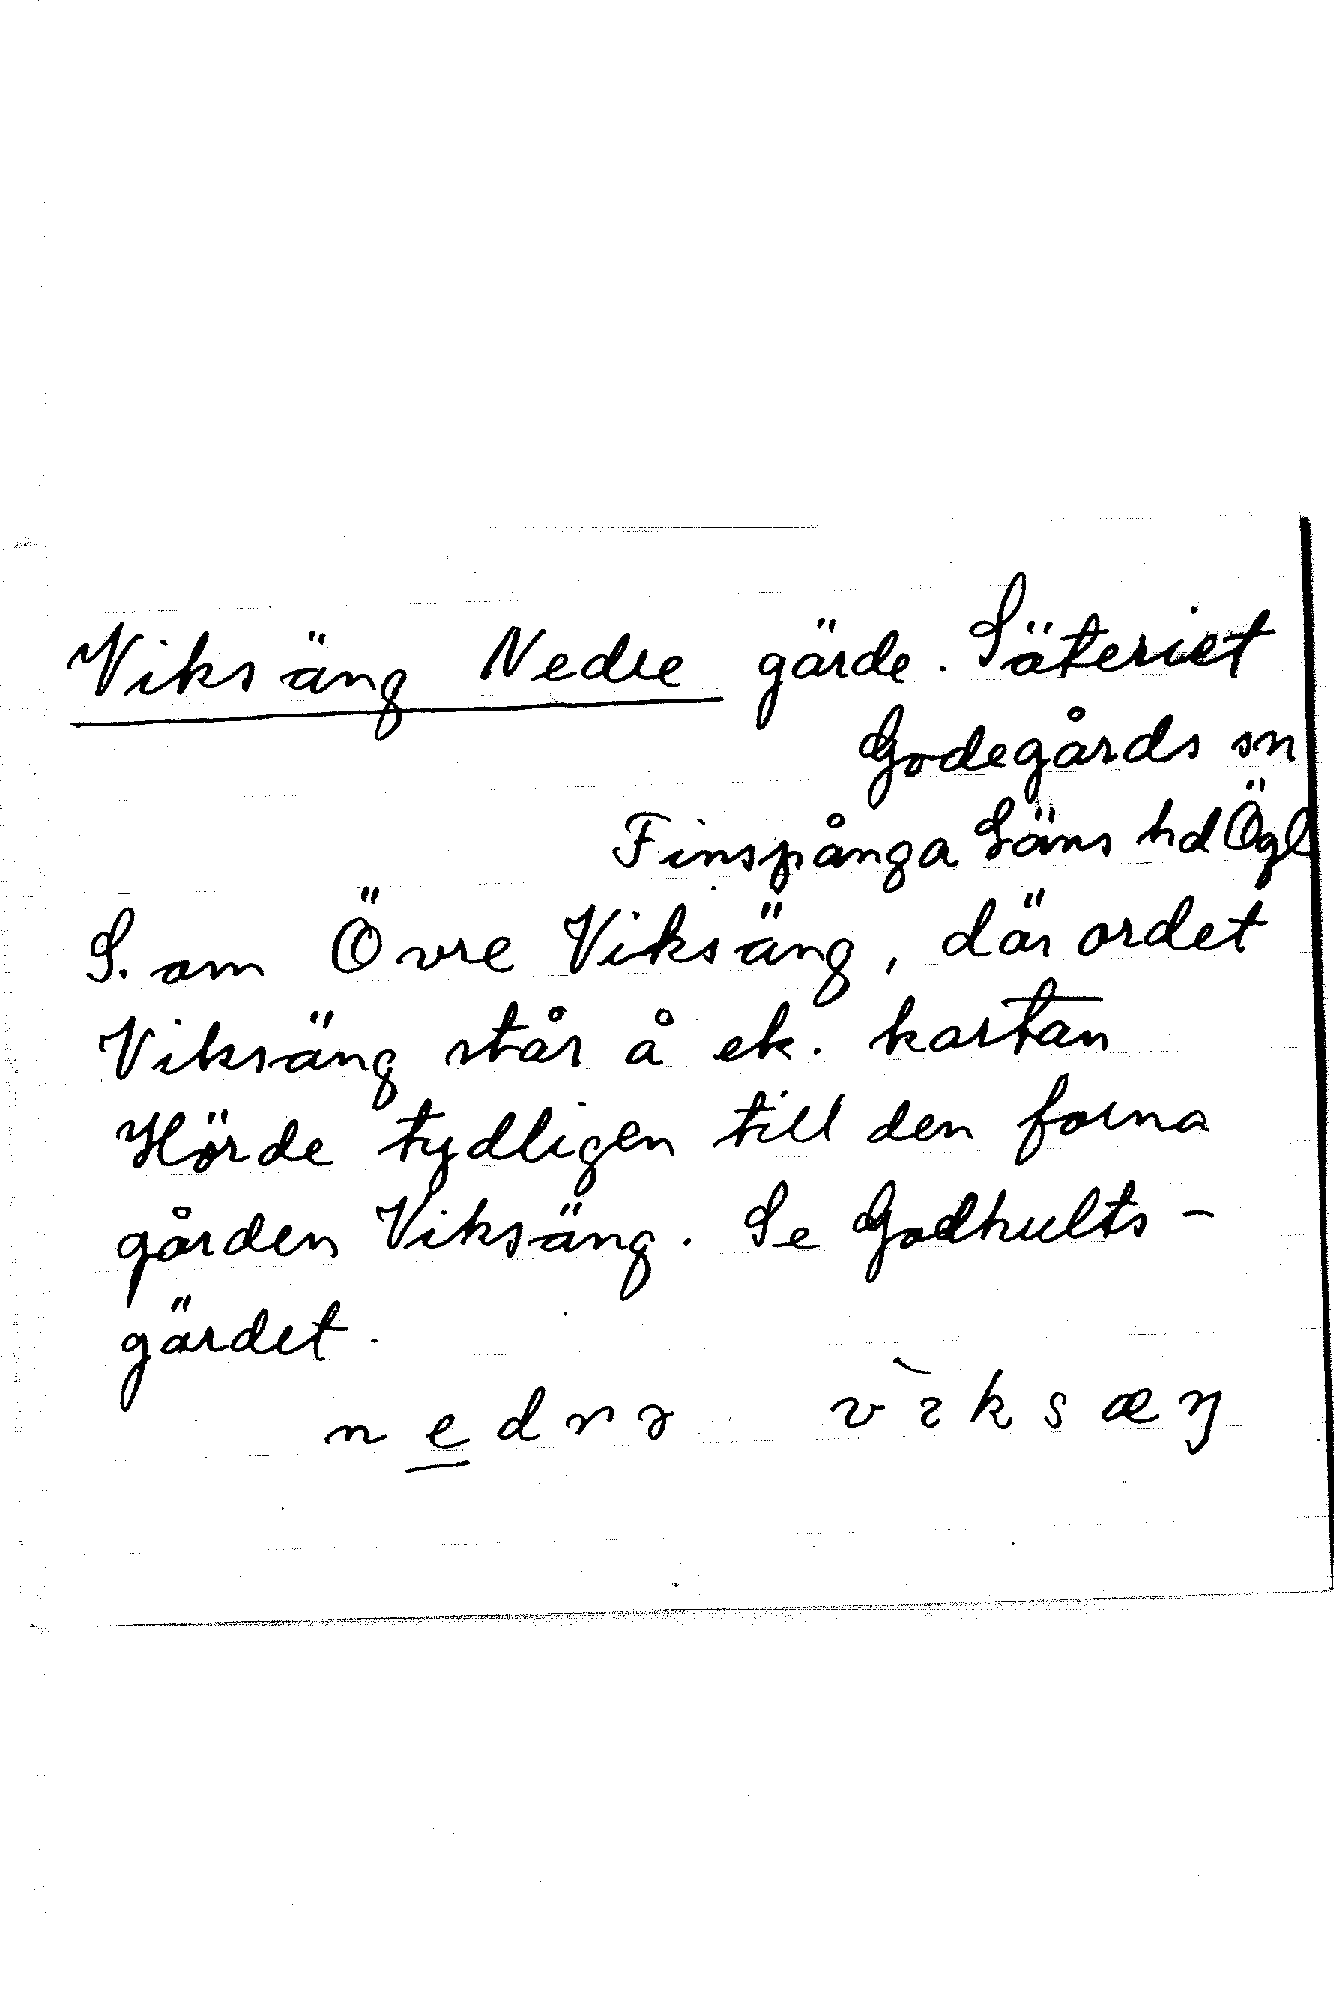 Viksäng Nedre gärde. Säteriet
Godegårds sn
Finspånga Läns hd Ögl
S. om Övre Viksäng, där ordet
Viksäng står å ek. kartan
Hörde tydligen till den forna
gården Viksäng. Se Godhults-
gärdet.